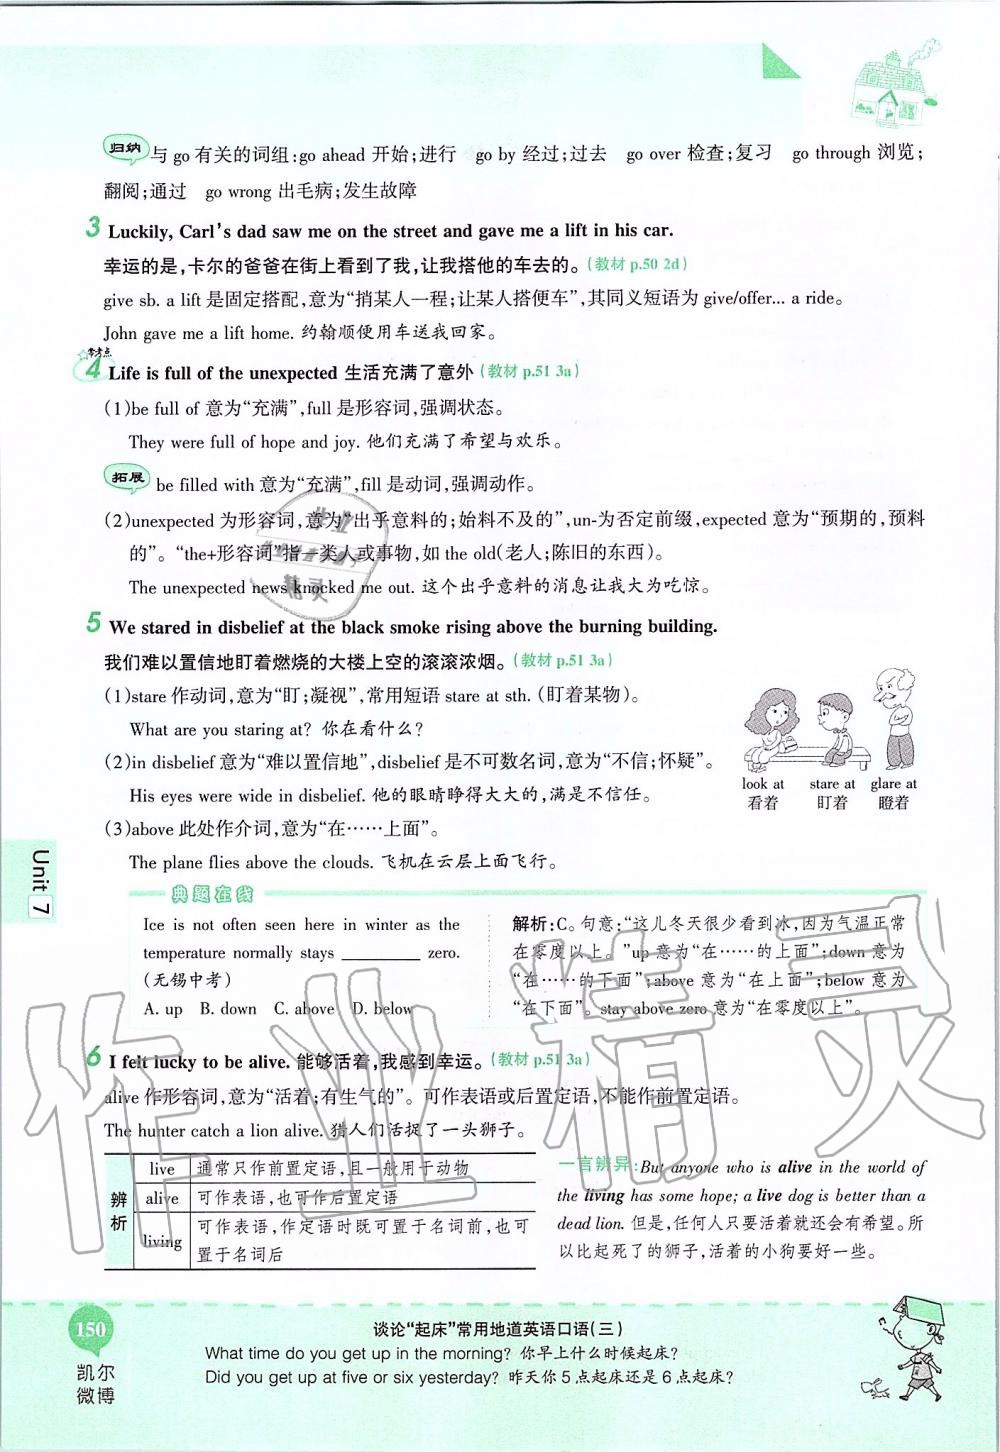 归纳 与 go 有关的词组:go ahead 开始;进行 go by 经过;过去 go over 检查;复习 go through 浏览;
翻阅;通过 go wrong 出毛病;发生故障
3 Luckily, Carl's dad saw me on the street and gave me a lift in his car.
幸运的是,卡尔的爸爸在街上看到了我,让我搭他的车去的。(教材 p.50 2d)
give sb. a lift 是固定搭配,意为“捎某人一程;让某人搭便车”,其同义短语为 give/offer... a ride。
John gave me a lift home. 约翰顺便用车送我回家。
常考点
4 Life is full of the unexpected 生活充满了意外(教材 p.51 3a)
(1)be full of 意为“充满”,full 是形容词,强调状态。
They were full of hope and joy. 他们充满了希望与欢乐。
拓展 be filled with 意为“充满”,fill 是动词,强调动作。
(2)unexpected 为形容词,意为“出乎意料的;始料不及的”,un-为否定前缀,expected 意为“预期的,预料
的”。“the+形容词”指一类人或事物,如 the old(老人;陈旧的东西)。
The unexpected news knocked me out. 这个出乎意料的消息让我大为吃惊。
5 We stared in disbelief at the black smoke rising above the burning building.
我们难以置信地盯着燃烧的大楼上空的滚滚浓烟。(教材 p.51 3a)
(1)stare 作动词,意为“盯;凝视”,常用短语 stare at sth. (盯着某物)。
What are you staring at? 你在看什么?
(2)in disbelief 意为“难以置信地”,disbelief 是不可数名词,意为“不信;怀疑”。
His eyes were wide in disbelief. 他的眼睛睁得大大的,满是不信任。
look at stare at glare at
看着 盯着 瞪着
(3)above 此处作介词,意为“在……上面”。
The plane flies above the clouds. 飞机在云层上面飞行。
Unit 7
典题在线
Ice is not often seen here in winter as the
temperature normally stays ________ zero.
(无锡中考)
A. up B. down C. above D. below
解析:C。句意:“这儿冬天很少看到冰,因为气温正常
在零度以上。”up 意为“在……的上面”;down 意为
“在……的下面”;above 意为“在上面”;below 意为
“在下面”。stay above zero 意为“在零度以上”。
6 I felt lucky to be alive. 能够活着,我感到幸运。(教材 p.51 3a)
alive 作形容词,意为“活着;有生气的”。可作表语或后置定语,不能作前置定语。
The hunter catch a lion alive. 猎人们活捉了一头狮子。
辨析
live 通常只作前置定语,且一般用于动物
alive 可作表语,也可作后置定语
living 可作表语,作定语时既可置于名词前,也可
置于名词后
一言辨异:But anyone who is alive in the world of
the living has some hope; a live dog is better than a
dead lion. 但是,任何人只要活着就还会有希望。所
以比起死了的狮子,活着的小狗要好一些。
作业精灵
150
凯尔
微博
谈论“起床”常用地道英语口语(三)
What time do you get up in the morning? 你早上什么时候起床?
Did you get up at five or six yesterday? 昨天你 5 点起床还是 6 点起床?